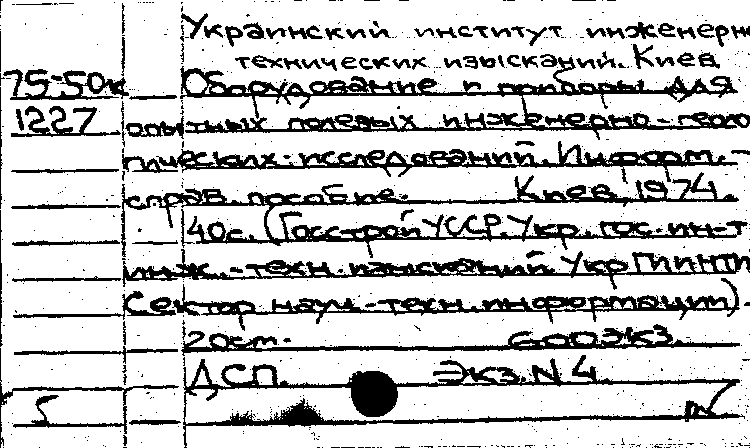 Украинский институт инженерно
технических изысканий. Киев
75-50к Оборудование и приборы для
1227 опытных полевых инженерно-геоло
гических исследований. Информ.-
справ. пособие. Киев, 1974.
40с. (Госстрой УССР. Укр. гос. ин-т
инж.-техн. изысканий. УкрГИИНТИ
Сектор науч.-техн. информации).
20см. 600экз.
ДСП. Экз. N 4.
5